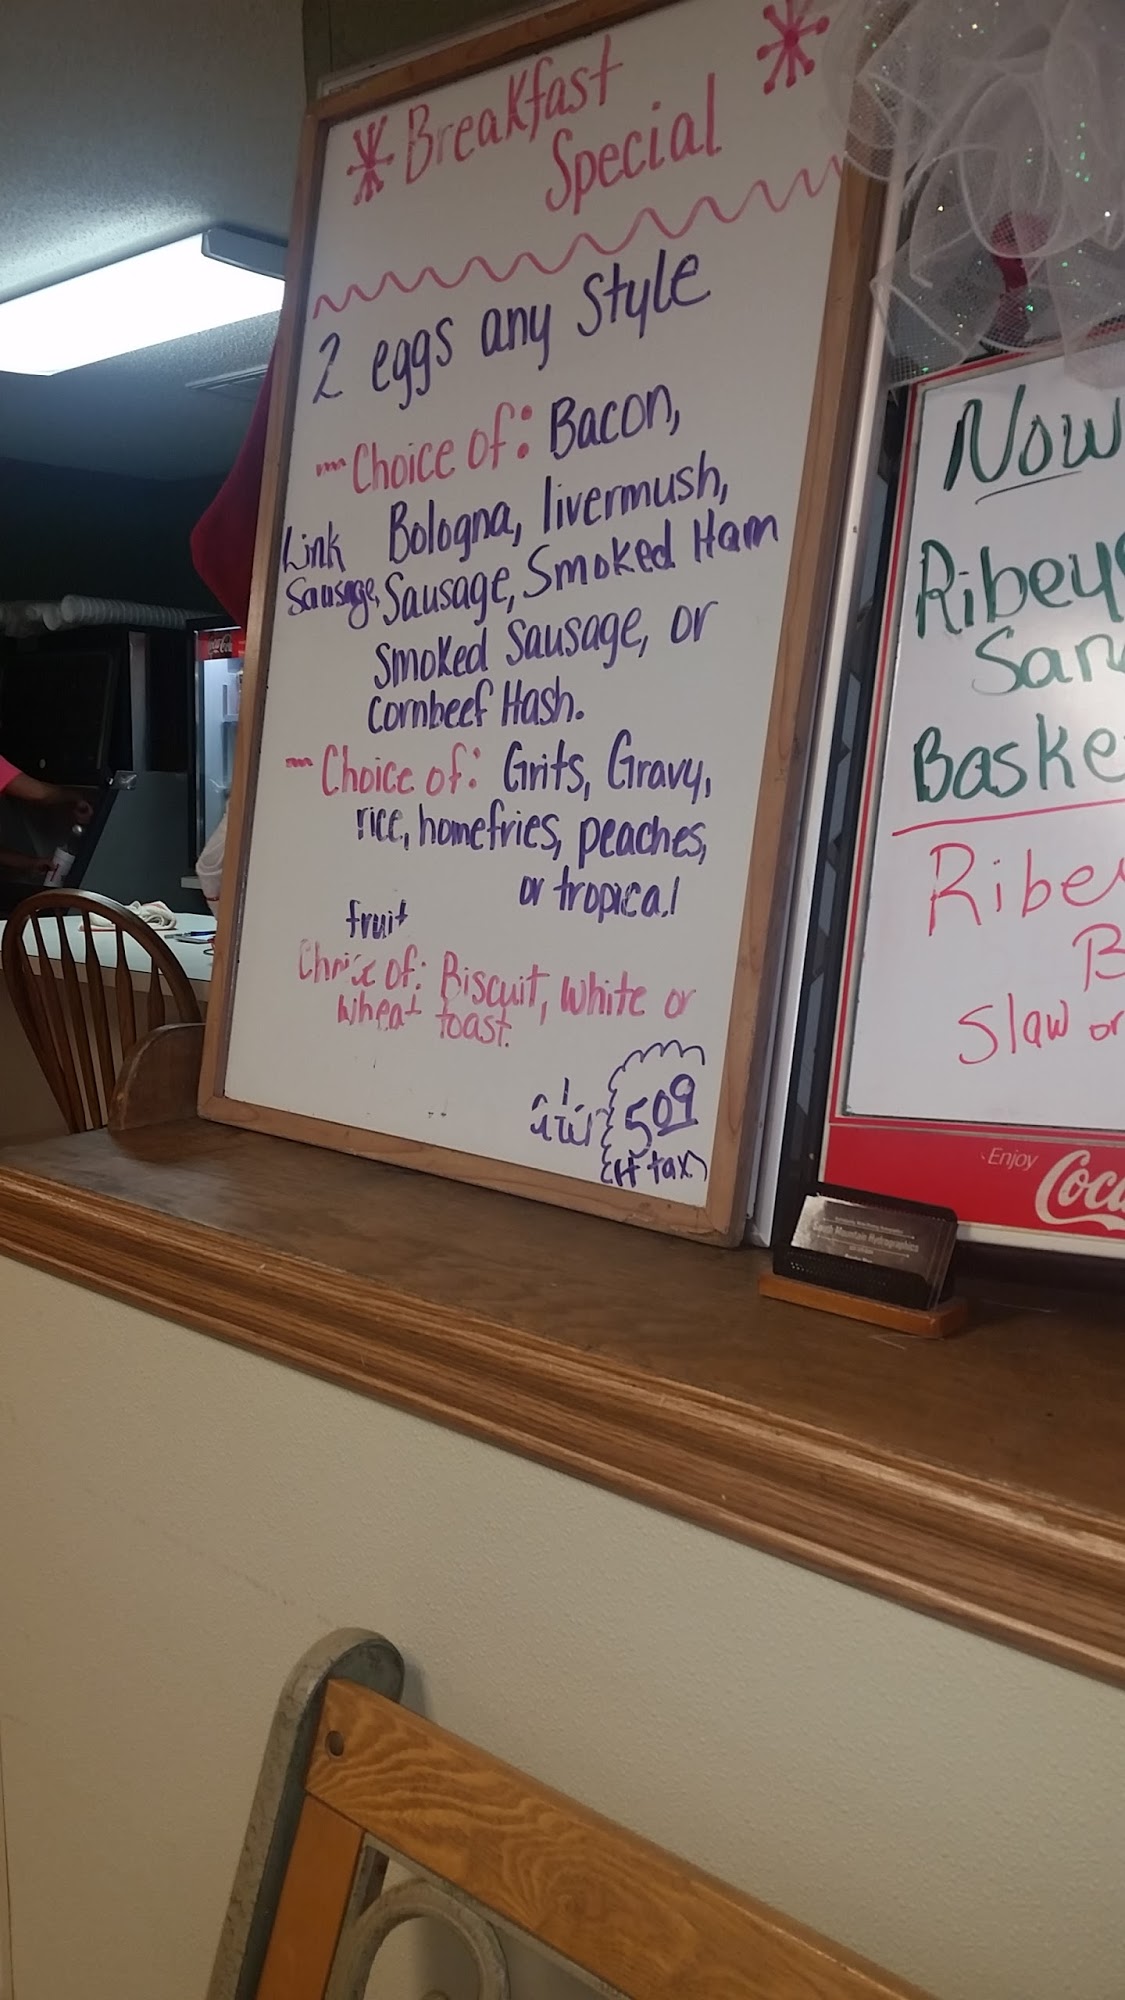 Breakfast
Special
2 eggs any Style
- Choice of: Bacon,
Bologna, livermush,
Link Sausage, Sausage, Smoked Ham
Smoked Sausage, or
Cornbeef Hash.
- Choice of: Grits, Gravy,
rice, homefries, peaches,
or tropical
fruit
Choice of: Biscuit, White or
Wheat toast.
5.09
(+ tax)
Now
Ribeye
San
Baske
Ribe
B
Slaw or
Enjoy
Coca
South Mountain Hydrographics